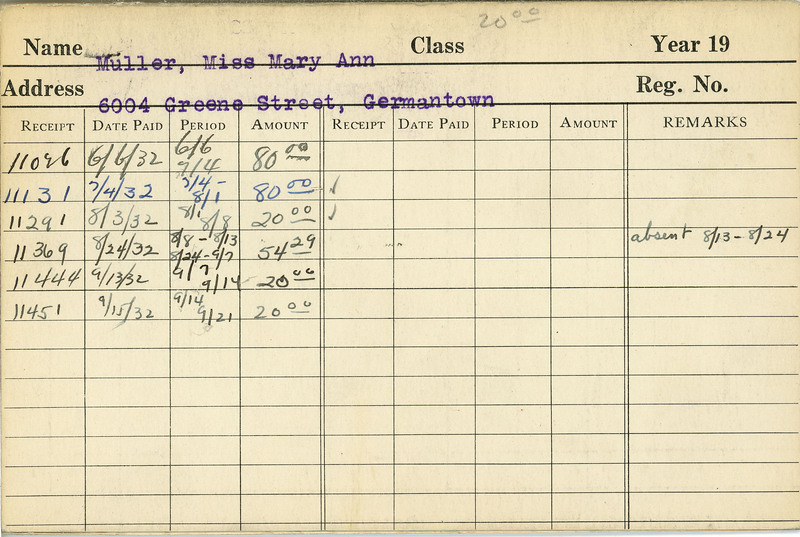 20 00
Name Class Year 19
Muller, Miss Mary Ann
Address Reg. No.
6004 Greene Street, Germantown
RECEIPT DATE PAID PERIOD AMOUNT RECEIPT DATE PAID PERIOD AMOUNT REMARKS
11096 6/6/32 6/6 7/4 80 00
11131 7/4/32 7/4 - 8/1 80 00 ✓
11291 8/3/32 8/1 8/8 20 00 ✓
11369 8/24/32 8/8 - 8/13 8/24 - 9/7 54 29 absent 8/13 - 8/24
11444 9/13/32 9/7 9/14 20 00
11451 9/15/32 9/14 9/21 20 00